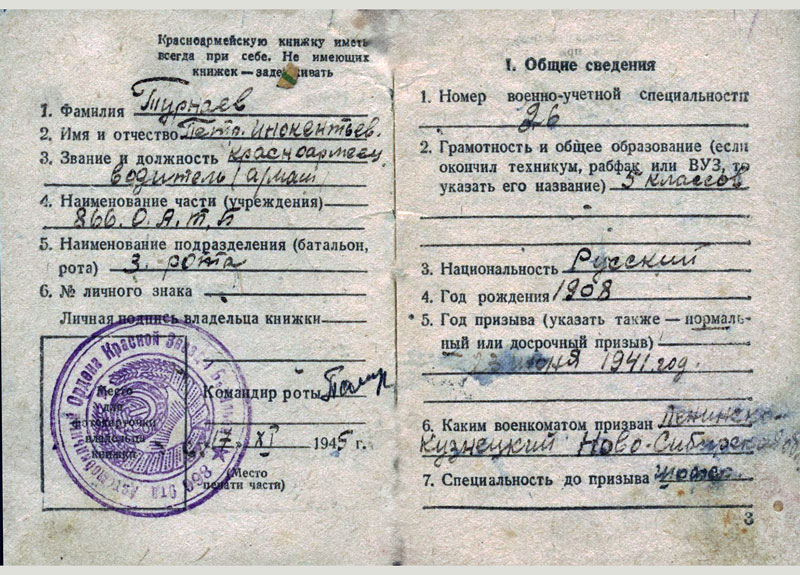 Красноармейскую книжку иметь
всегда при себе. Не имеющих
книжек — задерживать
1. Фамилия Турнаев
2. Имя и отчество Петр. Инокентьев.
3. Звание и должность красноармеец
водитель
4. Наименование части (учреждения)
866. О.А.т.б
5. Наименование подразделения (батальон,
рота) 3. рота
6. № личного знака
Личная подпись владельца книжки
Место
для
фотокарточки
владельца
книжки
Командир роты
17 XI 1945 г.
(Место
печати части)
Ордена Красной
866
I. Общие сведения
1. Номер военно-учетной специальности
26
2. Грамотность и общее образование (если
окончил техникум, рабфак или ВУЗ, то
указать его название) 5 классов
3. Национальность Русский
4. Год рождения 1908
5. Год призыва (указать также — нормаль-
ный или досрочный призыв)
23 июня 1941 год.
6. Каким военкоматом призван Ленинско-
Кузнецкий Ново-Сибирской
7. Специальность до призыва шофер.
3